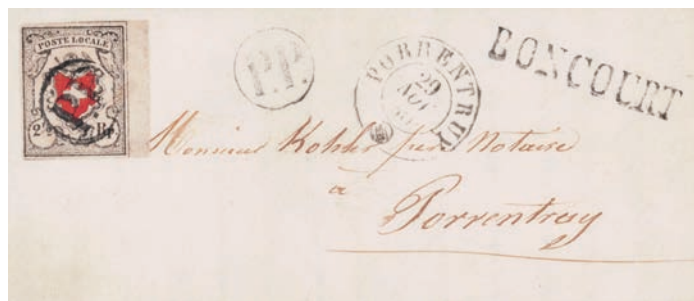 POSTE LOCALE
2½ Rp.
P.P.
P.P.
PORRENTRUY
29
NOV
BONCOURT
Monsieur Kohler père Notaire
à
Porrentruy